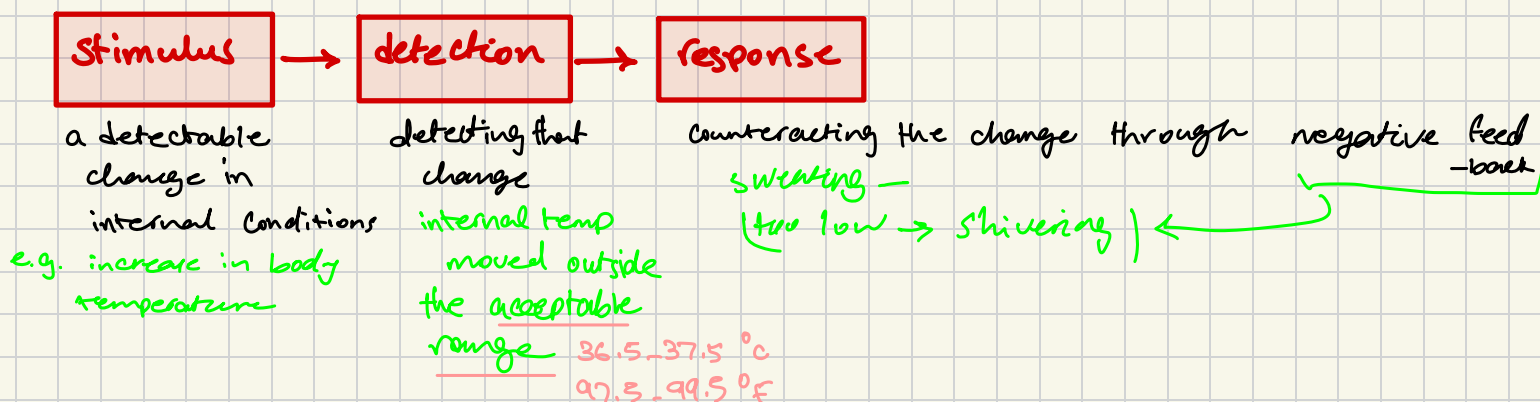 stimulus → detection → response
a detectable
change in
internal conditions
e.g. increase in body
temperature
detecting that
change
internal temp
moved outside
the acceptable
range
36.5-37.5 °C
97.5-99.5 °F
counteracting the change through negative feed
-back
sweating —
(too low → shivering)